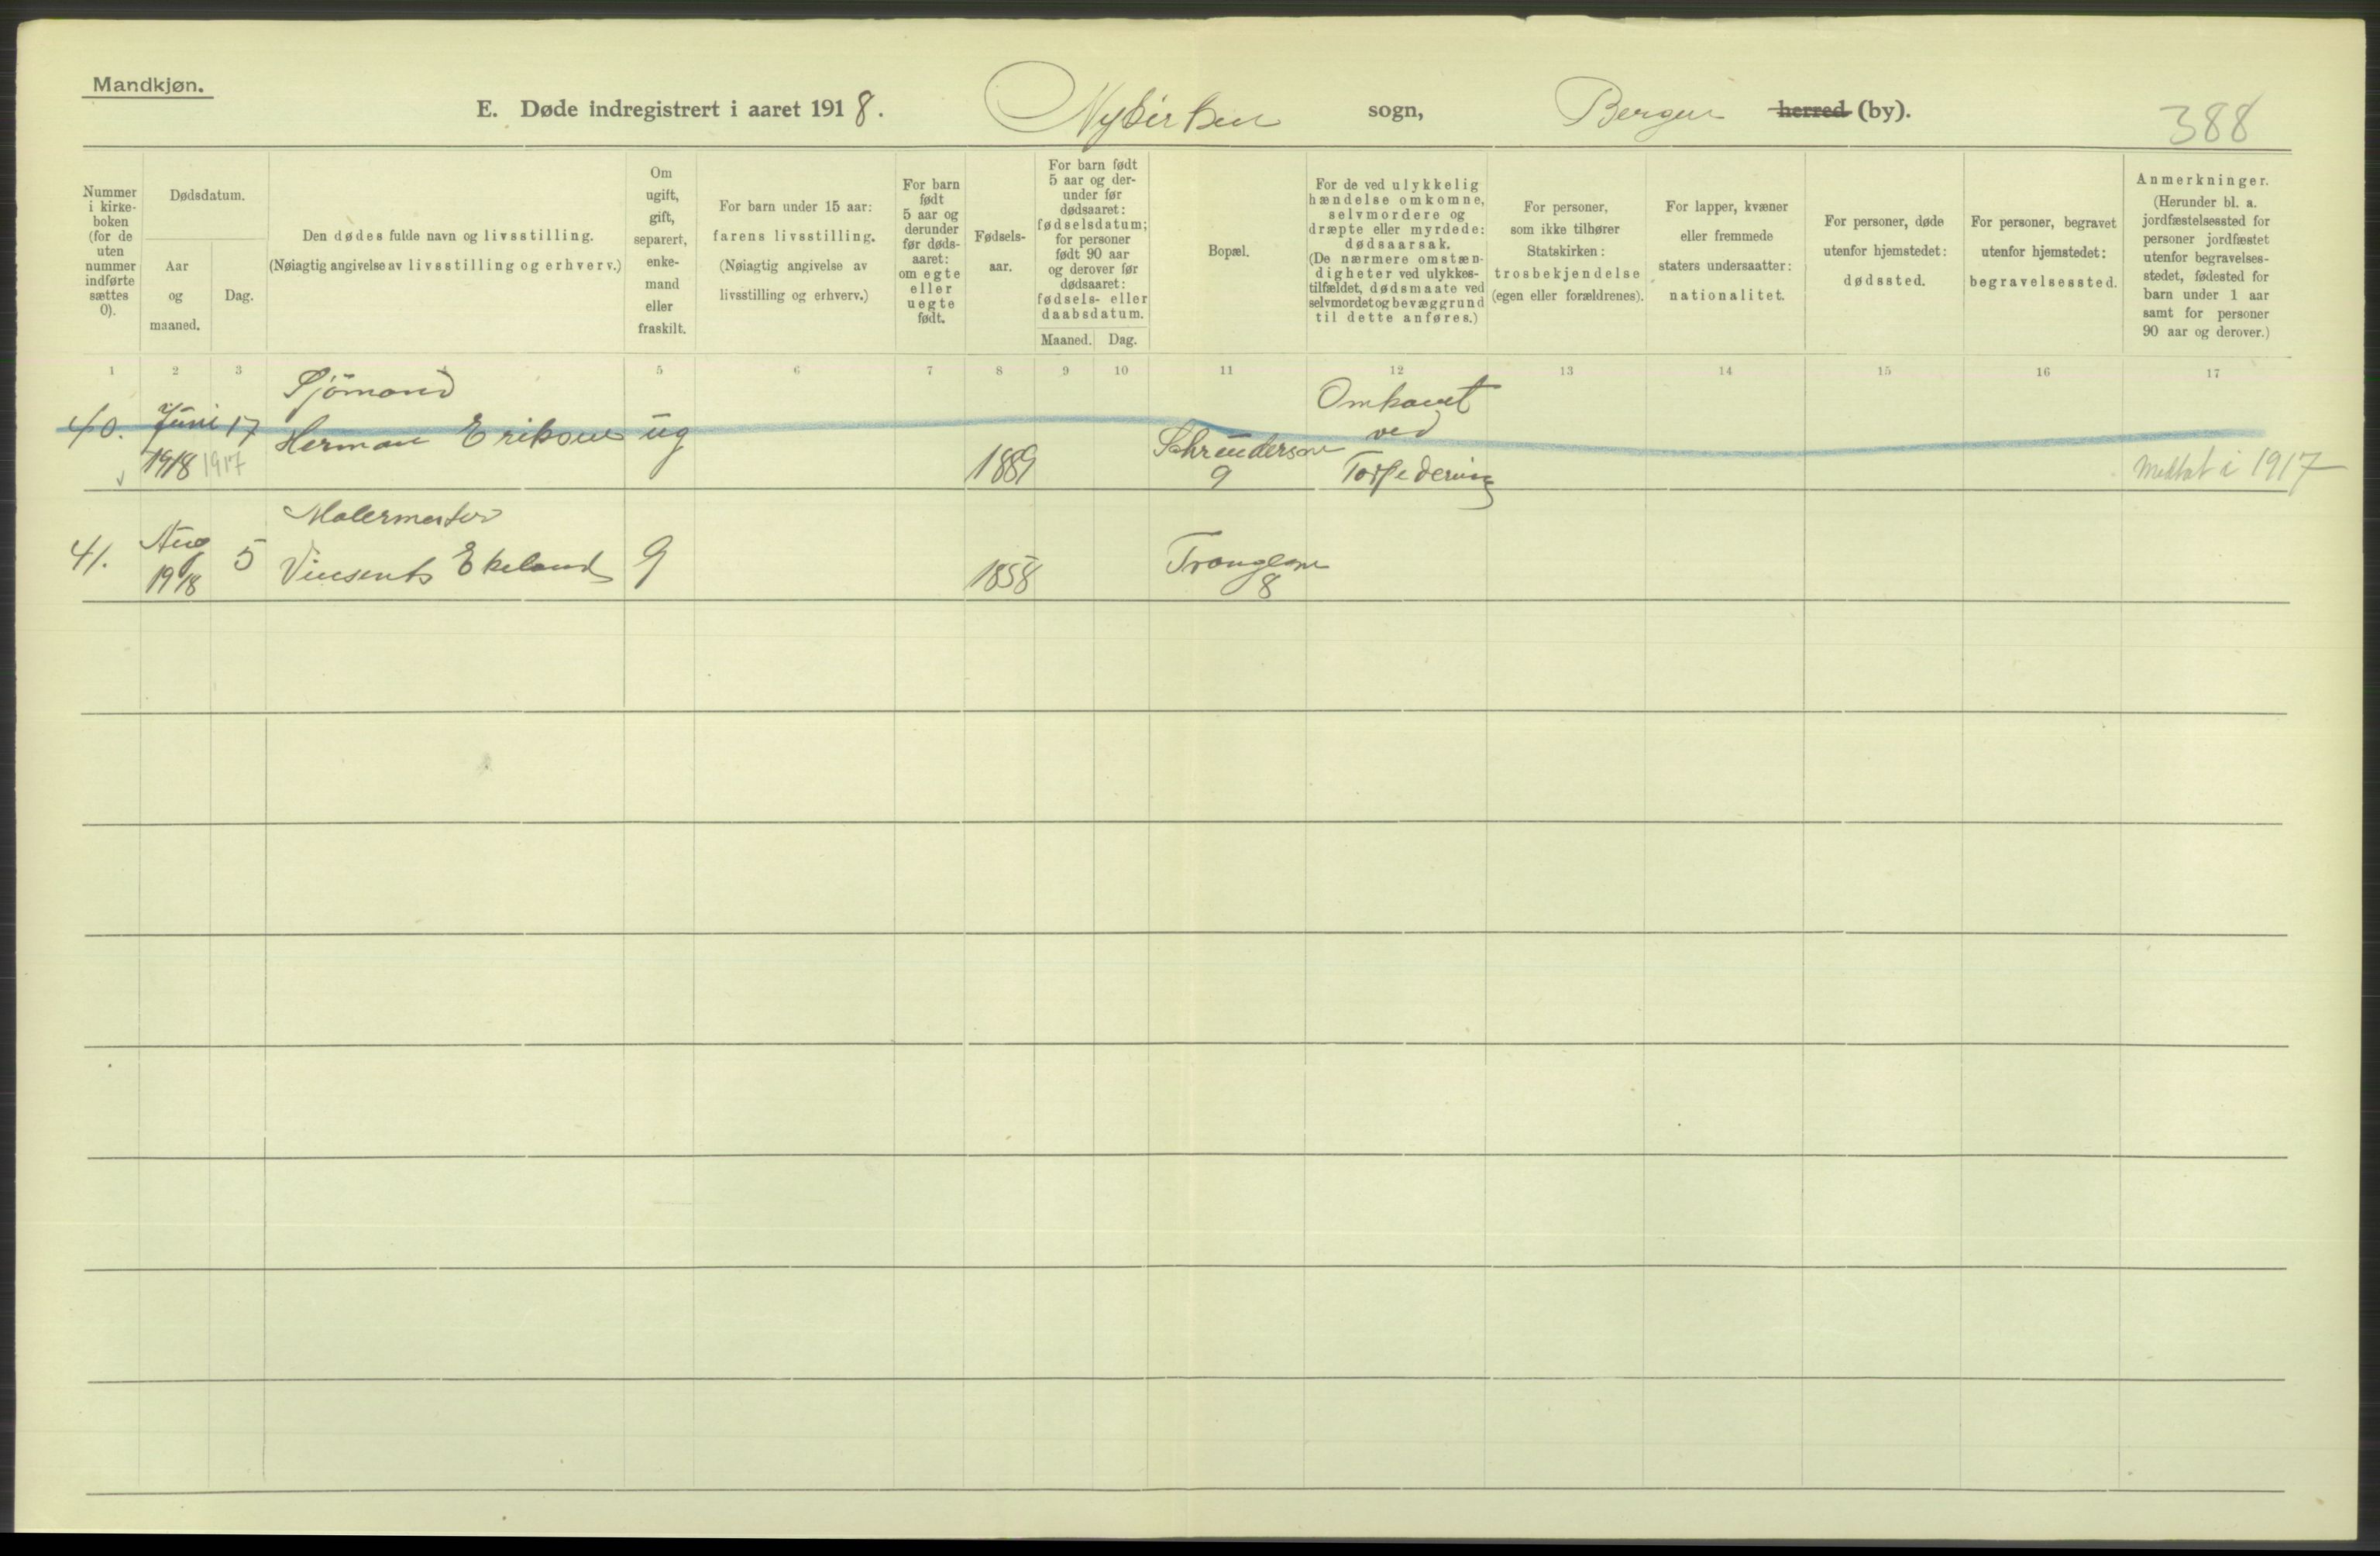 Mandkjøn.
E. Døde indregistrert i aaret 1918. Nykirken sogn, Bergen herred (by). 388
Nummer i kirke-boken (for de uten nummer indførte sættes 0).
Dødsdatum.
Aar og maaned.
Dag.
Den dødes fulde navn og livsstilling.
(Nøiagtig angivelse av livsstilling og erhverv.)
Om ugift, gift, separert, enke-mand eller fraskilt.
For barn under 15 aar:
farens livsstilling.
(Nøiagtig angivelse av
livsstilling og erhverv.)
For barn født 5 aar og derunder før døds-aaret: om egte eller uegte født.
Fødsels-aar.
For barn født 5 aar og der-under før dødsaaret: fødselsdatum; for personer født 90 aar og derover før dødsaaret: fødsels- eller daabsdatum.
Maaned. Dag.
Bopæl.
For de ved ulykkelig hændelse omkomne, selvmordere og dræpte eller myrdede: dødsaarsak.
(De nærmere omstæn-digheter ved ulykkes-tilfældet, dødsmaate ved selvmordet og bevæggrund til dette anføres.)
For personer, som ikke tilhører Statskirken: trosbekjendelse (egen eller forældrenes).
For lapper, kvæner eller fremmede staters undersaatter: nationalitet.
For personer, døde utenfor hjemstedet: dødssted.
For personer, begravet utenfor hjemstedet: begravelsessted.
Anmerkninger.
(Herunder bl. a. jordfæstelsessted for personer jordfæstet utenfor begravelses-stedet, fødested for barn under 1 aar samt for personer 90 aar og derover.)
1 2 3 5 6 7 8 9 10 11 12 13 14 15 16 17
Sjömand
40. Juni 1918 1917 17 Herman Eriksen ug 1889 9 Omkomet ved Torpedering Medtat i 1917
Malermester
41. Aug 1918 5 Vinsents Ekeland g 1858 8